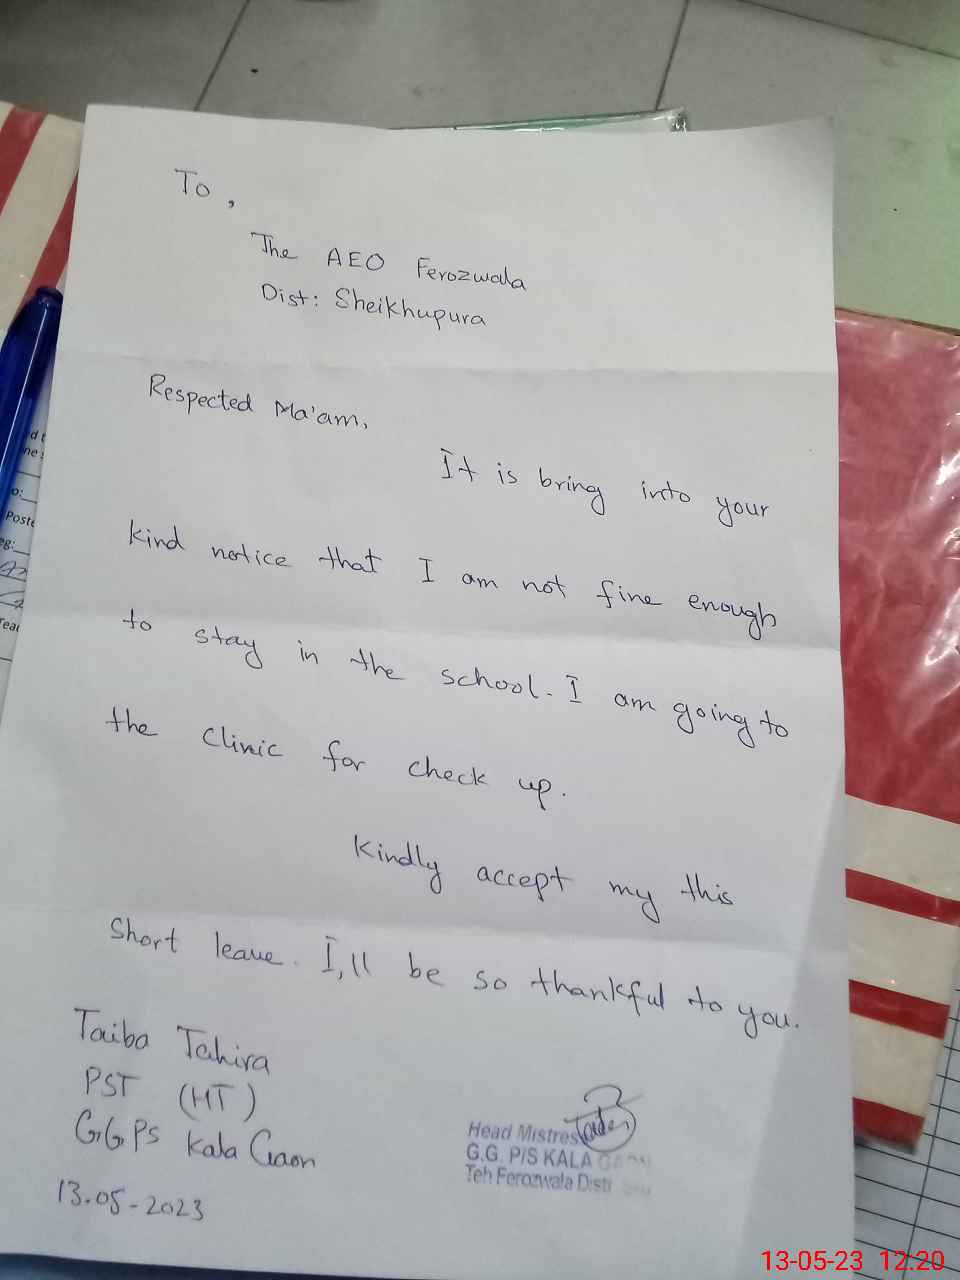 To,
The AEO Ferozwala
Dist: Sheikhupura
Respected Ma'am,
It is bring into your
kind notice that I am not fine enough
to stay in the school. I am going to
the clinic for check up.
Kindly accept my this
short leave. I,ll be so thankful to you.
Taiba Tahira
PST (HT)
GGPS Kala Gaon
13.05-2023
Head Mistres
G.G. P/S KALA
Teh Ferozwala Disti
13-05-23 12.20